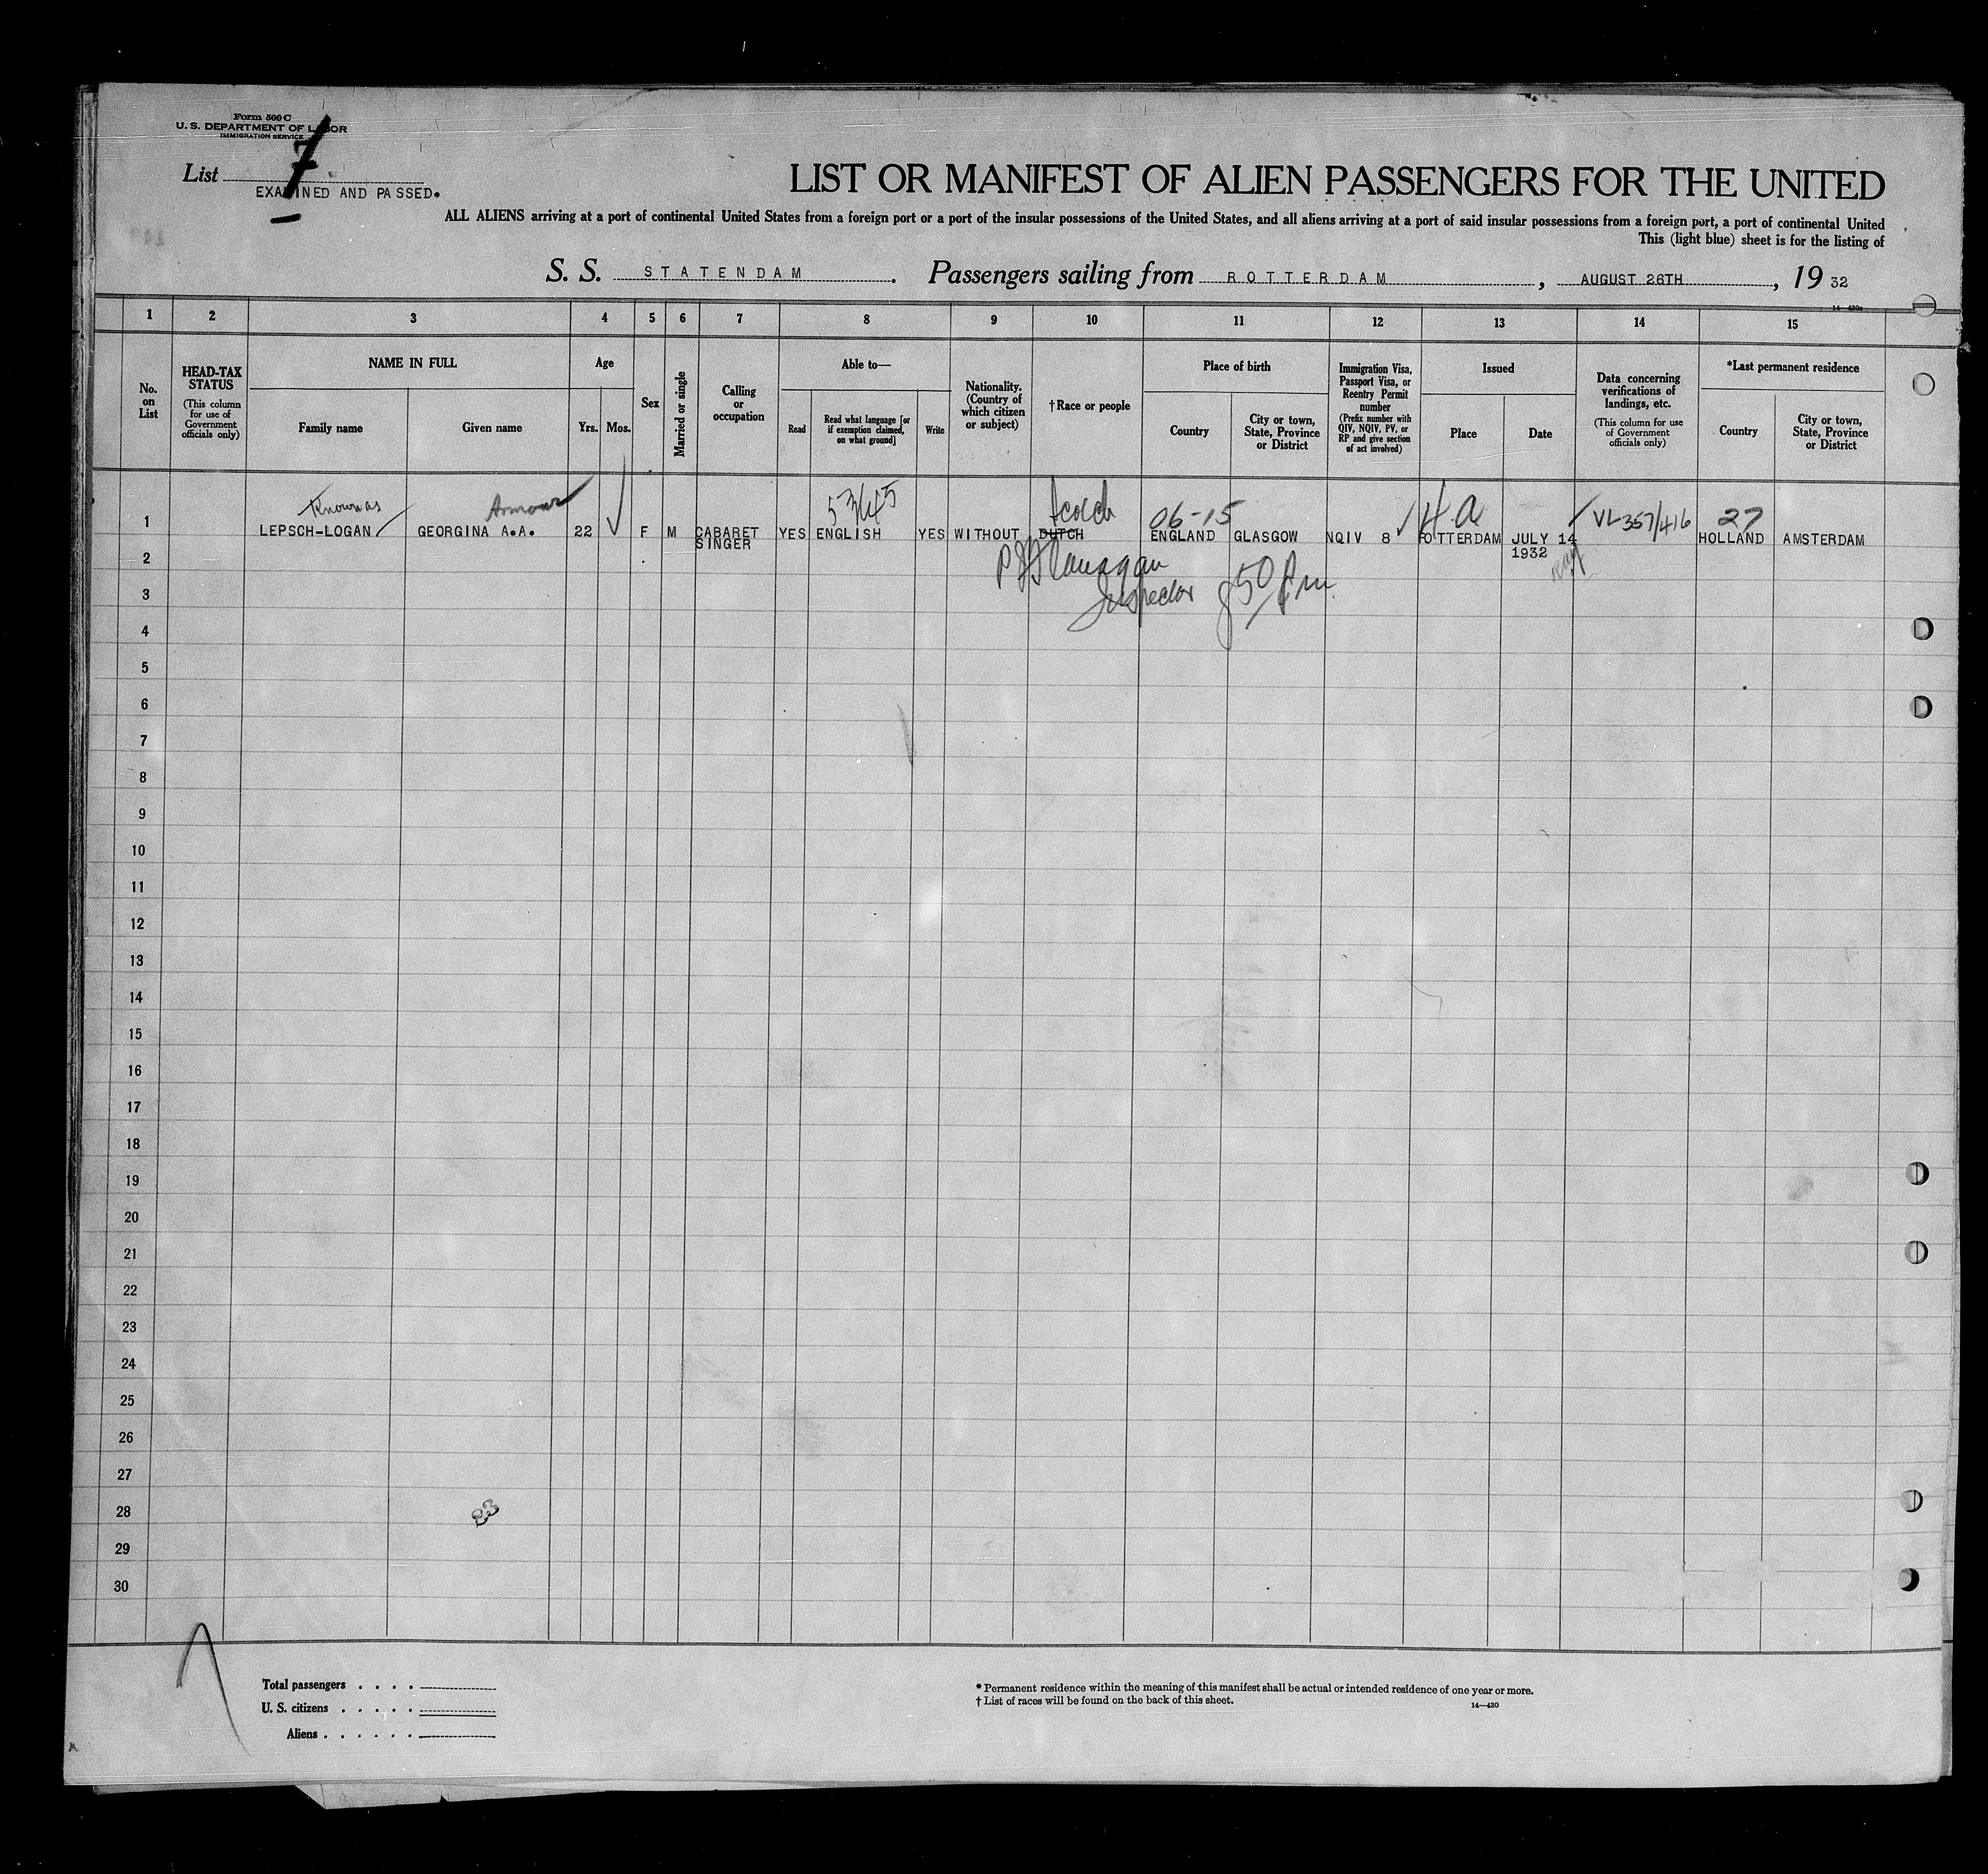 Form 500 C
U. S. DEPARTMENT OF LABOR
IMMIGRATION SERVICE
List 7
EXAMINED AND PASSED.
LIST OR MANIFEST OF ALIEN PASSENGERS FOR THE UNITED
ALL ALIENS arriving at a port of continental United States from a foreign port or a port of the insular possessions of the United States, and all aliens arriving at a port of said insular possessions from a foreign port, a port of continental United
This (light blue) sheet is for the listing of
S. S. STATENDAM. Passengers sailing from ROTTERDAM, AUGUST 26TH, 1932
14—430a
1 2 3 4 5 6 7 8 9 10 11 12 13 14 15
No. on List
HEAD-TAX STATUS
(This column for use of Government officials only)
NAME IN FULL
Family name
Given name
Age
Yrs.
Mos.
Sex
Married or single
Calling or occupation
Able to—
Read
Read what language [or if exemption claimed, on what ground]
Write
Nationality. (Country of which citizen or subject)
† Race or people
Place of birth
Country
City or town, State, Province or District
Immigration Visa, Passport Visa, or Reentry Permit number
(Prefix number with QIV, NQIV, PV, or RP and give section of act involved)
Issued
Place
Date
Data concerning verifications of landings, etc.
(This column for use of Government officials only)
*Last permanent residence
Country
City or town, State, Province or District
Known as Armour 5 Scotch 06-15 H.a. VL 357/416 27
1 LEPSCH-LOGAN GEORGINA A.A. 22 F M CABARET SINGER YES ENGLISH YES WITHOUT DUTCH ENGLAND GLASGOW NQIV 8 ROTTERDAM JULY 14 1932 HOLLAND AMSTERDAM
P J Flanagan
Inspector
2
3
4
5
6
7
8
9
10
11
12
13
14
15
16
17
18
19
20
21
22
23
24
25
26
27
28
29
30
Total passengers
U. S. citizens
Aliens
* Permanent residence within the meaning of this manifest shall be actual or intended residence of one year or more.
† List of races will be found on the back of this sheet.
14—430